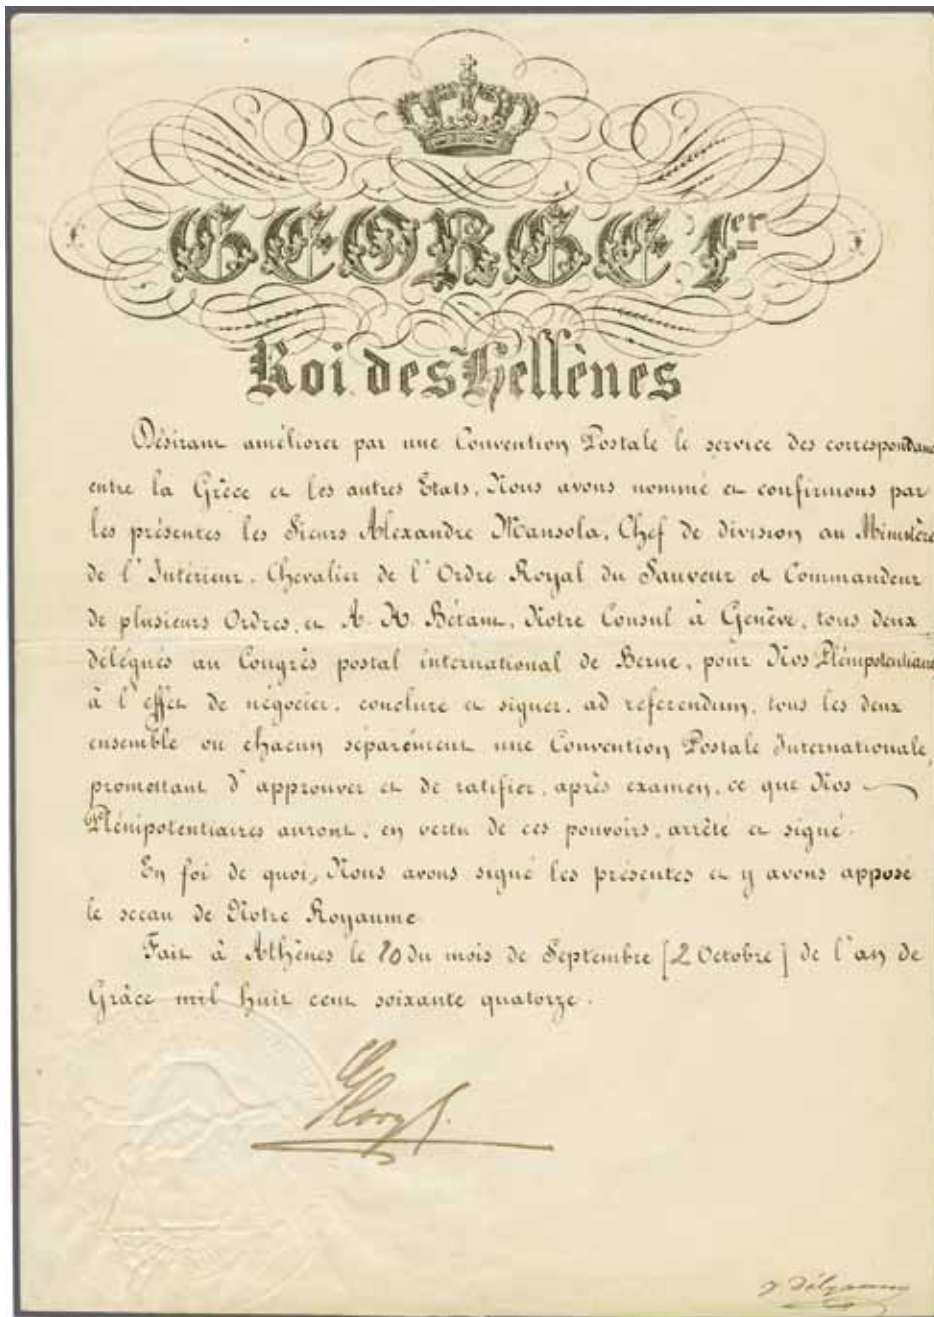 GEORGE 1er
Roi des Hellènes
Désirant améliorer par une Convention Postale le service des correspondance
entre la Grèce et les autres États, Nous avons nommé et confirmons par
les présentes les Sieurs Alexandre Mansola, Chef de division au Ministère
de l'Intérieur, Chevalier de l'Ordre Royal du Sauveur et Commandeur
de plusieurs Ordres, et A. H. Bétant, Notre Consul à Genève, tous deux
délégués au Congrès postal international de Berne, pour Nos Plénipotentiaires
à l'effet de négocier, conclure et signer, ad referendum, tous les deux
ensemble ou chacun séparément une Convention Postale Internationale,
promettant d'approuver et de ratifier, après examen, ce que Nos
Plénipotentiaires auront, en vertu de ces pouvoirs, arrêté et signé.
En foi de quoi, Nous avons signé les présentes et y avons apposé
le sceau de Notre Royaume
Fait à Athènes le 20 du mois de Septembre [2 Octobre] de l'an de
Grâce mil huit cent soixante quatorze.